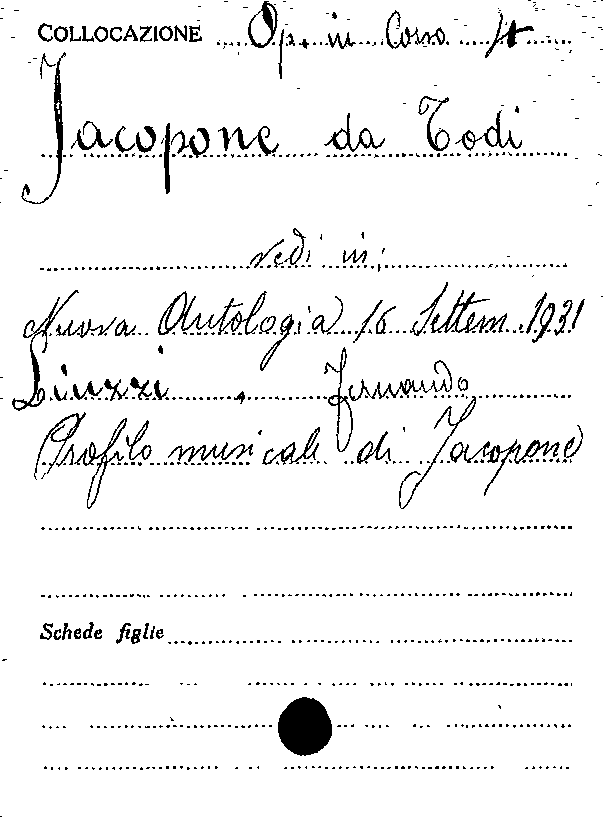 COLLOCAZIONE Op. in Corso 4
Jacopone da Todi
vedi in;
Nuova Antologia 16 Settem. 1931
Liuzzi, Fernando
Profilo musicale di Jacopone
Schede figlie